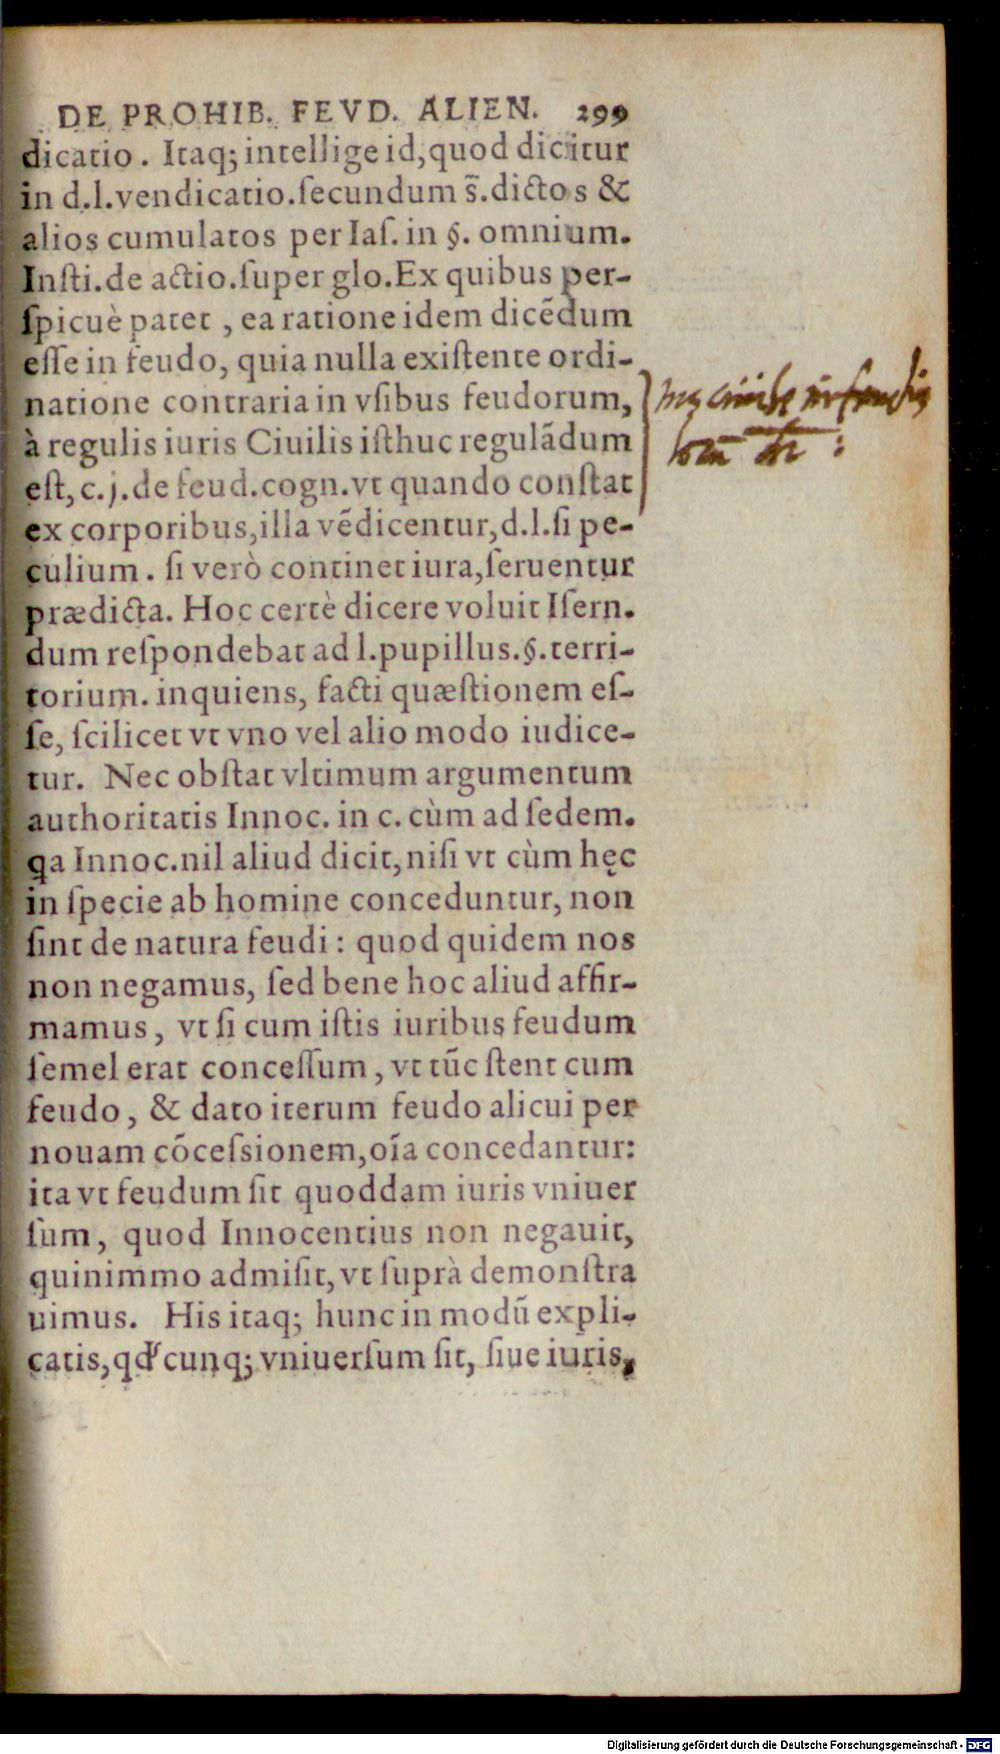 DE PROHIB. FEVD. ALIEN. 299
dicatio. Itaq; intellige id, quod dicitur
in d.l.vendicatio.ſecundum s̃.dictos &
alios cumulatos per Iaſ. in §. omnium.
Inſti.de actio.ſuper glo.Ex quibus per-
ſpicuè patet, ea ratione idem dicẽdum
eſſe in feudo, quia nulla exiſtente ordi-
natione contraria in vſibus feudorum,
à regulis iuris Ciuilis iſthuc regulãdum
eſt, c.j.de feud.cogn.vt quando conſtat
ex corporibus, illa vẽdicentur, d.l.ſi pe-
culium. ſi verò continet iura, ſeruentur
prædicta. Hoc certè dicere voluit Iſern.
dum reſpondebat ad l.pupillus.§.terri-
torium. inquiens, facti quæſtionem eſ-
ſe, ſcilicet vt vno vel alio modo iudice-
tur. Nec obſtat vltimum argumentum
authoritatis Innoc. in c. cùm ad ſedem.
qa Innoc.nil aliud dicit, niſi vt cùm hęc
in ſpecie ab homine conceduntur, non
ſint de natura feudi: quod quidem nos
non negamus, ſed bene hoc aliud affir-
mamus, vt ſi cum iſtis iuribus feudum
ſemel erat conceſſum, vt tũc ſtent cum
feudo, & dato iterum feudo alicui per
nouam cõceſsionem, oĩa concedantur:
ita vt feudum ſit quoddam iuris vniuer
ſum, quod Innocentius non negauit,
quinimmo admiſit, vt ſuprà demonſtra
uimus. His itaq; hunc in modũ expli-
catis, qđcunq; vniuerſum ſit, ſiue iuris,
Digitalisierung gefördert durch die Deutsche Forschungsgemeinschaft - DFG